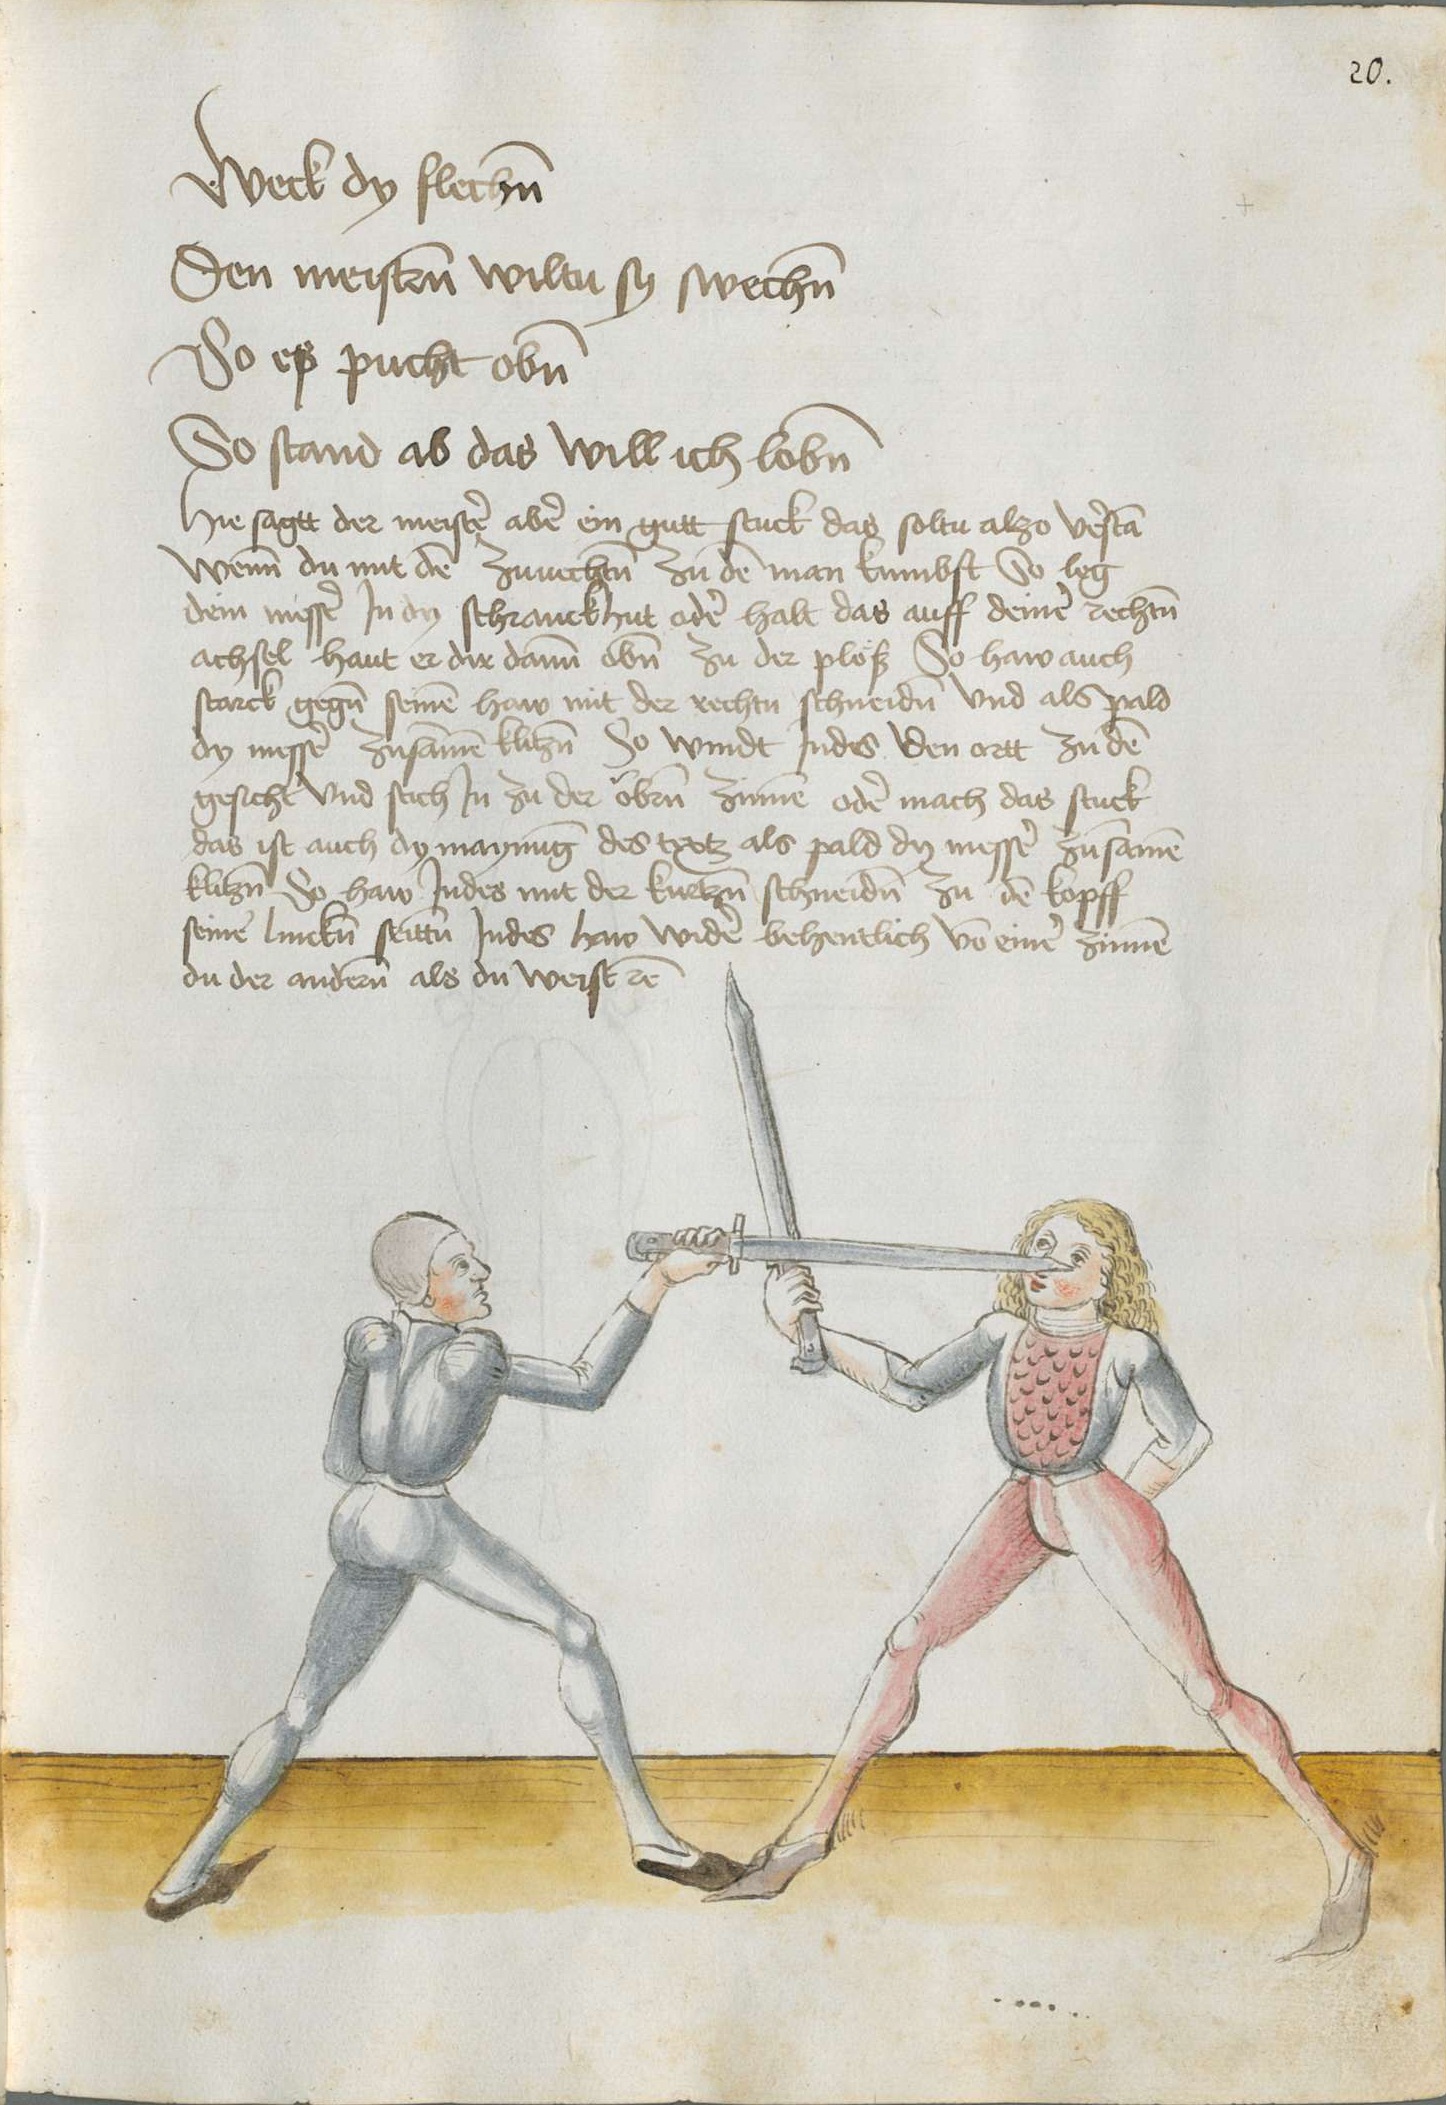 20.
Weck dy flechn̄
Den meistn̄ wiltu sy swechn̄
So eß pucht obn̄
So stand ab das will ich lobn̄
Hie sagtt der meistē abē ein gutt stuck das soltu alzo vēstā
Wenn̄ du mit dē zuuechtn̄ zu dē man kumbst So leg
dein messē In dy schranckhut odē halt das auff deinē rechtn̄
achsel haut er dir dann̄ obn̄ zu der plöß So haw auch
starck gegn̄ seinē haw mit der rechtn schneidn̄ Vnd als pald
dy messē zusāmē klitzn̄ So windt Indes den ortt zu dē
gesicht Vnd stich In zu der obrn̄ zinnē odē mach das stuck
das ist auch dy maynūg des textz als pald dy messē zusāmē
klitzn̄ So haw Indes mit der kurtzn̄ schneidn̄ zu dē kopff
seinē linckn̄ seittn̄ Indes haw widē behentlich vō einē zinnē
du der andern̄ als du weist rē